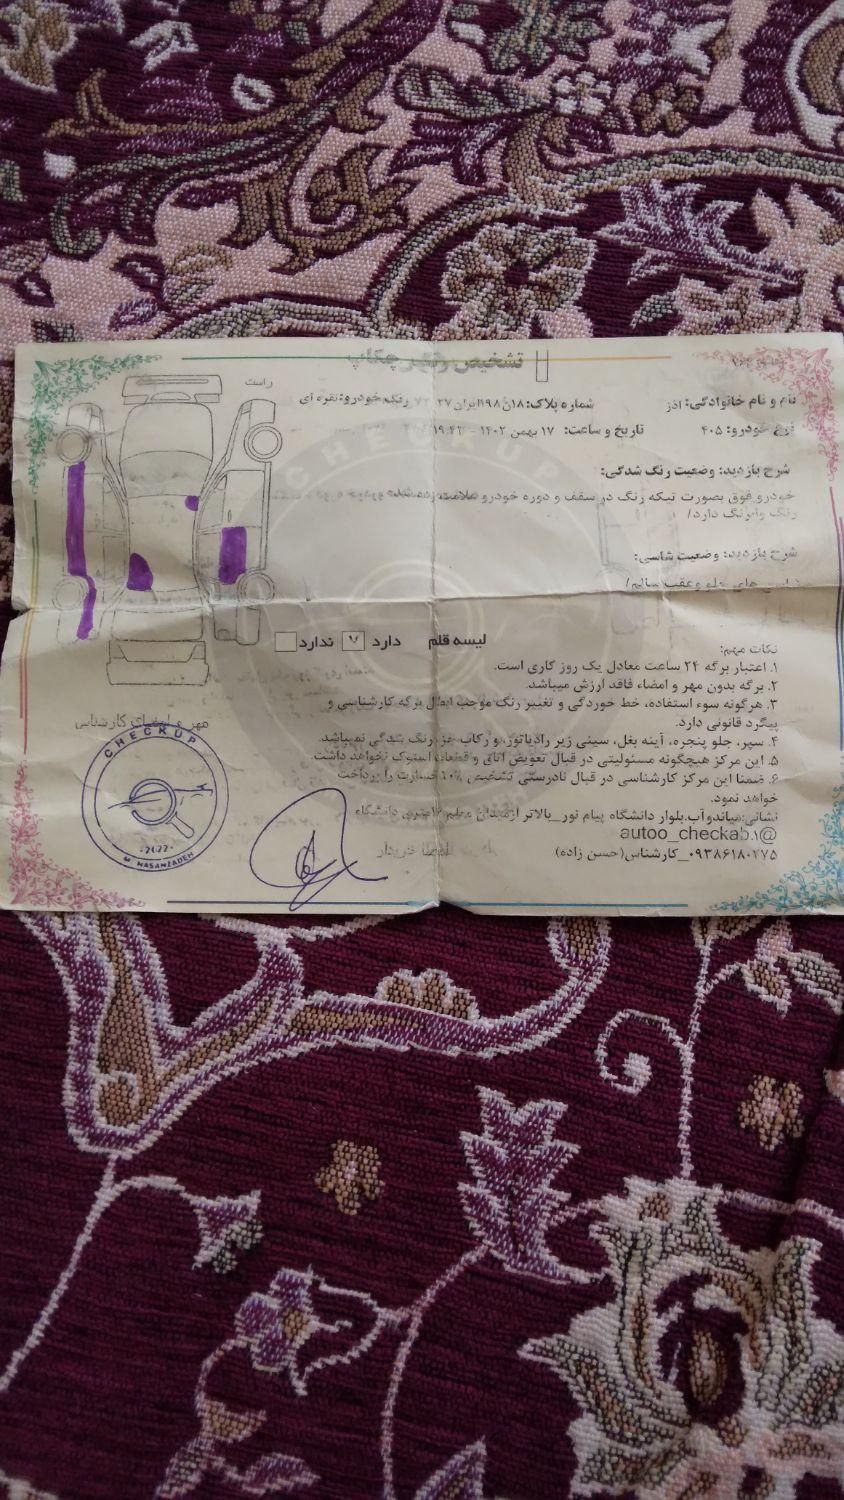 تشخیص رنگ چکاپ
راست
نام و نام خانوادگی: اذر
شماره پلاک:
رنگ خودرو: نقره ای
نوع خودرو: ۴۰۵
تاریخ و ساعت: ۱۷ بهمن ۱۴۰۲ - ۱۹:۴۳
شرح بازدید: وضعیت رنگ شدگی:
خودرو فوق بصورت تیکه رنگ در سقف و دوره خودرو علامت
رنگ دارد/
شرح بازدید: وضعیت شاسی:
شاسی های جلو وعقب سالم/
لیسه قلم دارد ندارد
نکات مهم:
۱. اعتبار برگه ۲۴ ساعت معادل یک روز کاری است.
۲. برگه بدون مهر و امضاء فاقد ارزش میباشد.
۳. هرگونه سوء استفاده، خط خوردگی و تغییر رنگ موجب ابطال برگه کارشناسی و
پیگرد قانونی دارد.
۴. سپر، جلو پنجره، آینه بغل، سینی زیر رادیاتور، و رکاب جز رنگ شدگی نمیباشد.
۵. این مرکز هیچگونه مسئولیتی در قبال تعویض اتاق و قطعات استوک نخواهد داشت.
۶. ضمنا این مرکز کارشناسی در قبال نادرستی تشخیص ۱۰٪ خسارت را پرداخت
خواهد نمود.
نشانی: میاندوآب. بلوار دانشگاه پیام نور_بالاتر ازمیدان معلم ۱۶متری دانشگاه
@autoo_checkab.۱
۰۹۳۸۶۱۸۰۲۷۵_کارشناس(حسن زاده)
مهر و امضای کارشناس
امضا خریدار
CHECKUP
-2022-
M HASANZADEH
CHECKUP